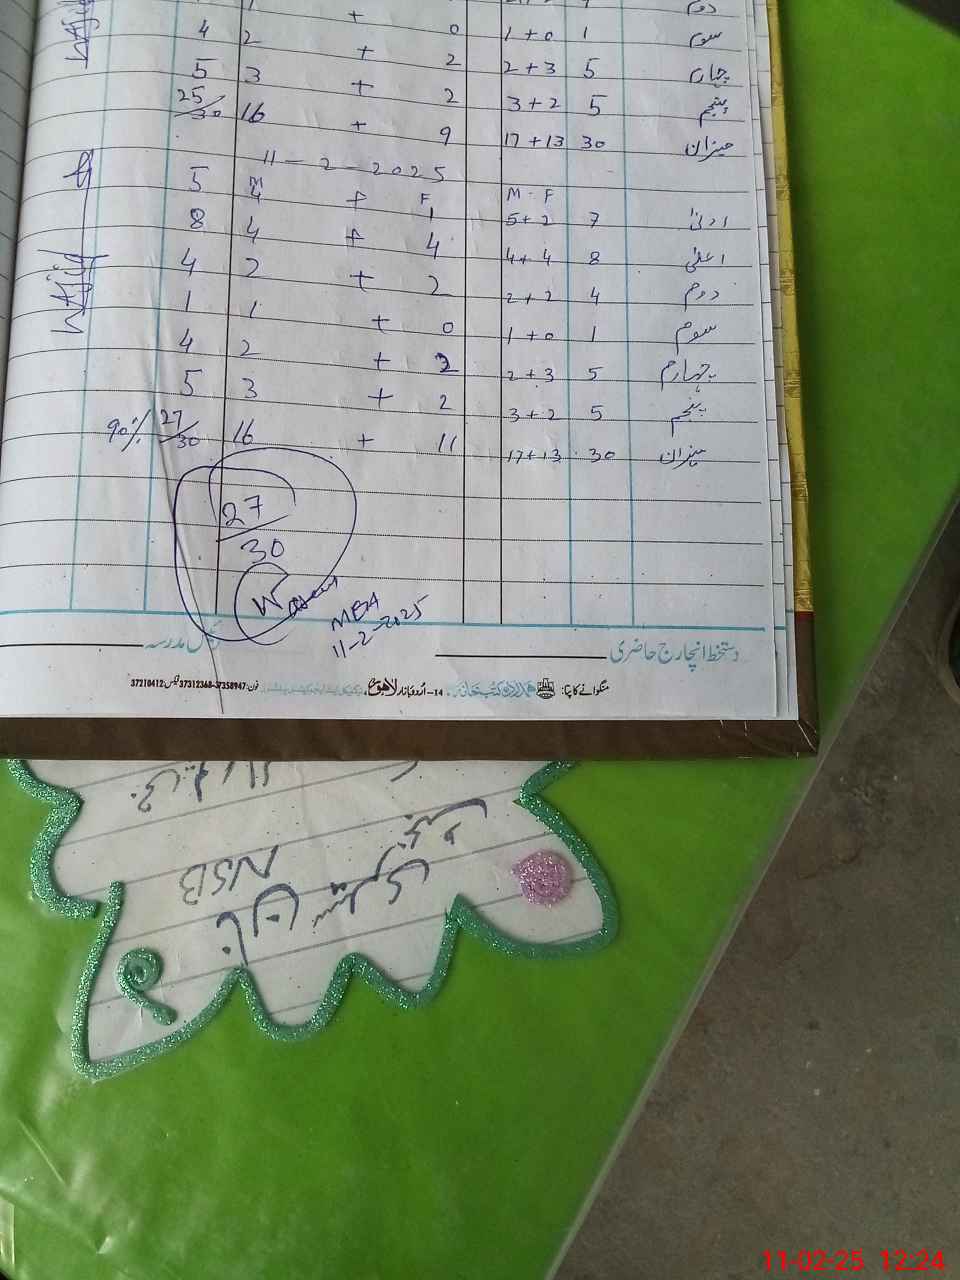 4 2 + 0 1 + 0 1 سوم
5 3 + 2 2 + 3 5 چہارم
25/30 16 + 2 3 + 2 5 پنجم
+ 9 17 + 13 30 میزان
11-2-2025
5 M F M - F
8 4 + 1 5 + 2 7 ادنیٰ
4 4 + 4 4 + 4 8 اعلیٰ
1 2 + 2 2 + 2 4 دوم
4 1 + 0 1 + 0 1 سوم
5 2 + 2 2 + 3 5 چہارم
3 + 2 3 + 2 5 پنجم
90% 27/30 16 + 11 17 + 13 30 میزان
WAjid
27/30
MEA
11-2-2025
دستخط انچارج حاضری مدرسہ
منگوانے کا پتا: ہمدرد کتب خانہ 14-اُردو بازار لاہور فون: 37358947-37312368 فیکس: 37210412
NSB
11-02-25 12:24